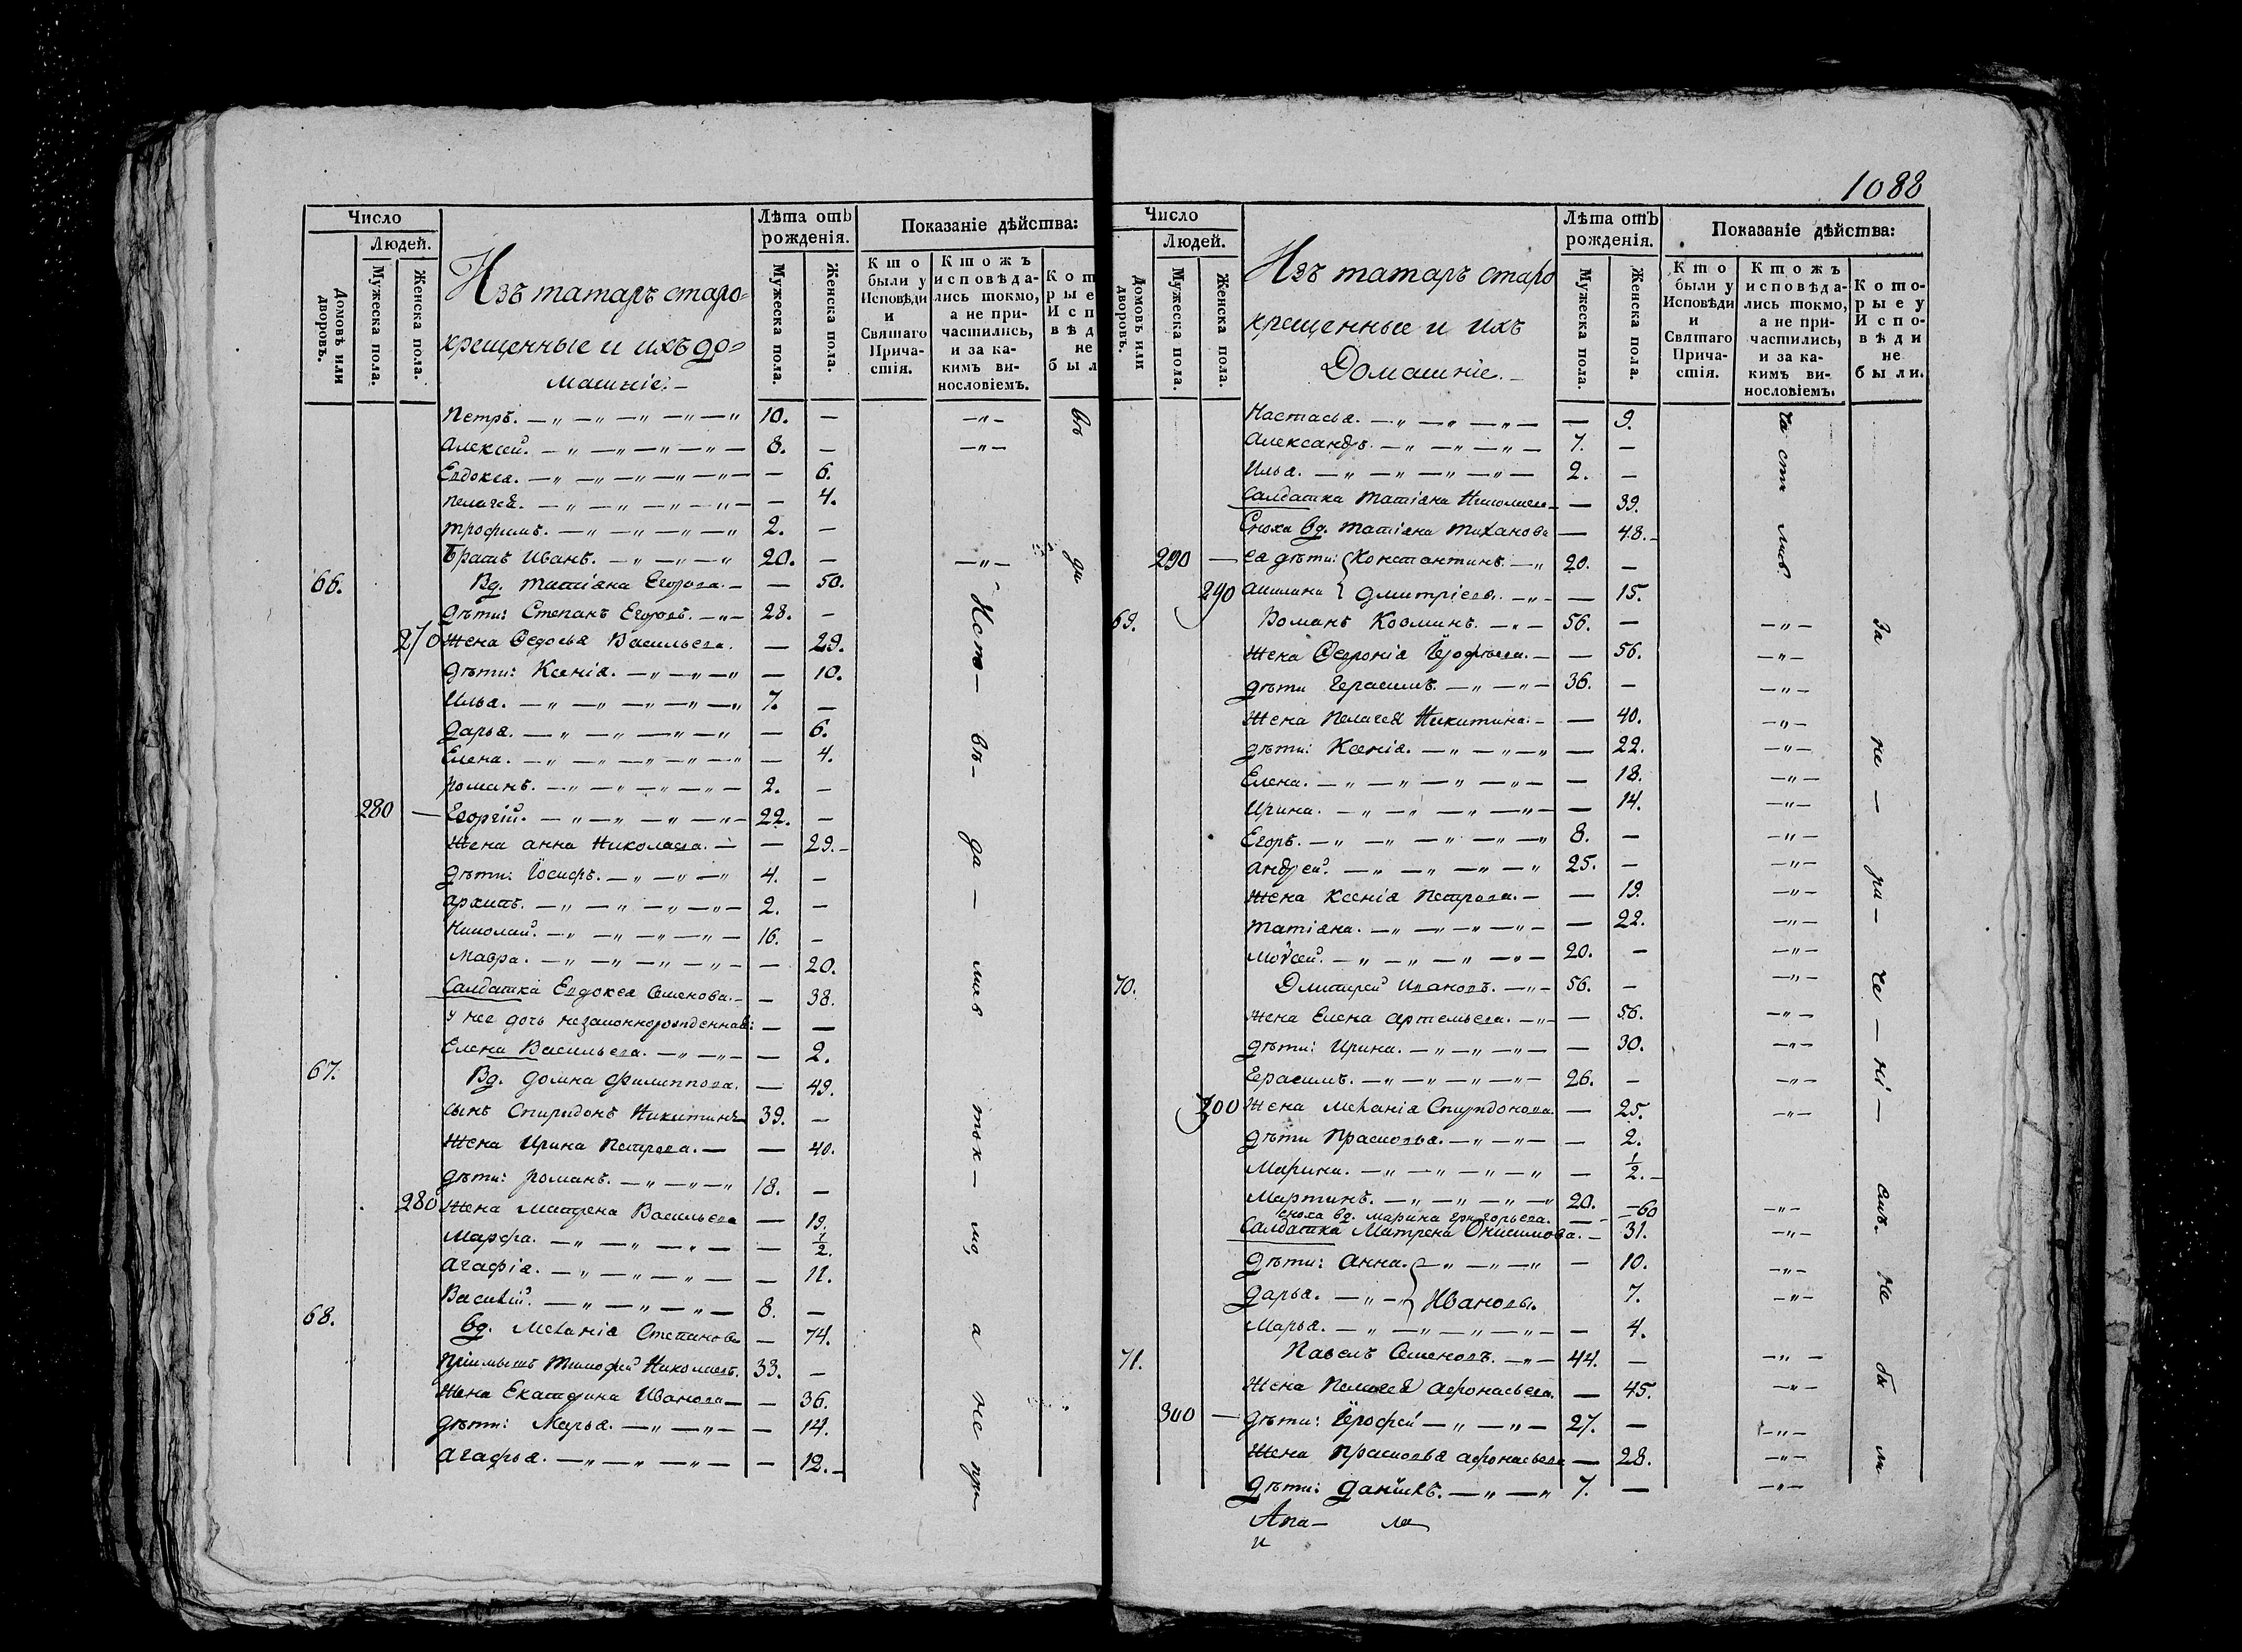 Число
Людей.
Домовъ или дворовъ.
Мужеска пола.
Женска пола.
Изъ татаръ старо=
крещенные и ихъ до=
машніе. –
Лѣта отъ рожденія.
Мужеска пола.
Женска пола.
Показаніе дѣйства:
Кто были у Исповѣди и Святаго Причастія.
Ктожъ исповѣдались токмо, а не причастились, и за какимъ винословіемъ.
Петръ. 10. —
Алексей. 8. —
Евдокеа. — 6.
Пелагея. — 4.
Трофимъ. 2. —
Братъ Иванъ. 20. —
66. Вд. Татіана Егорова. — 50.
дѣти: Степанъ Егоровъ. 28. —
270 Жена Ѳедосья Васильева. — 29.
дѣти: Ксеніа. — 10.
Илья. 7. —
Дарья. — 6.
Елена. — 4.
Романъ. 2. —
280 — Георгій. 22. —
Жена Анна Николаева. — 29.
дѣти: Іосифъ. 4. —
Архипъ. 2. —
Николай. 16. —
Мавра. — 20.
Салдатка Евдокеа Семенова. — 38.
у нее дочь незаконнорожденная: — —
Елена Васильева. — 2.
67. Вд. Домна Филиппова. — 49.
сынъ Спиридонъ Никитинъ 39. —
Жена Ирина Петрова. — 40.
дѣти: Романъ. 18. —
280 Жена Матрена Васильева — 19.
Марфа. — 1/2.
Агафіа. — 11.
Василій. 8. —
68. Вд. Меланіа Степанова — 74.
Пріимышъ Тимофей Николаевъ. 33. —
Жена Екатерина Иванова — 36.
дѣти: Марья. — 14.
Агафья. — 12.
Испо– вѣ– да – лись токмо, а не при
1088
Число
Людей.
Домовъ или дворовъ.
Мужеска пола.
Женска пола.
Изъ татаръ старо
крещенные и ихъ
Домашніе. –
Лѣта отъ рожденія.
Мужеска пола.
Женска пола.
Показаніе дѣйства:
Кто были у Исповѣди и Святаго Причастія.
Ктожъ исповѣдались токмо, а не причастились, и за какимъ винословіемъ.
Которые у Исповѣди не были.
Настасья. — 9.
Александръ. 7. —
Илья. 2. —
Салдатка Татіана Николаева — 39.
Сноха вд. Татіана — 48.
290 — Ея дѣти: Константинъ. 20. —
290 Дмитріевы. — 15.
69. Романъ Козминъ. 56. —
Жена Ѳевроніа — 56.
дѣти Герасимъ. 36. —
Жена Пелагея Никитина. — 40.
дѣти: Ксеніа. — 22.
Елена. — 18.
Ирина. — 14.
Егоръ. 8. —
Андрей. 25. —
Жена Ксеніа Петрова. — 19.
Татіана. — 22.
Мойсей. 20. —
70. Дмитрей Ивановъ. 56. —
Жена Елена Артемьева. — 56.
дѣти: Ирина. — 30.
Герасимъ. 26. —
300 Жена Меланіа Спиридонова. — 25.
дѣти Прасковья. — 2.
Марина. — 1/2.
Мартинъ. 20. —
сноха вд. Марина Григорьева. — 60
Салдатка Матрена Онисимова. — 31.
Дѣти: Анна. — 10.
Дарья. Ивановы. 7.
Марья. — 4.
71. Павелъ Семеновъ. 44. —
Жена Пелагея Афонасьева. — 45.
300 — дѣти: Ерофей 27. —
Жена Прасковья Афонасьева — 28.
Дѣти: Данійлъ. 7. —
частились.
За не – ра – че – ні – емъ не бы ли